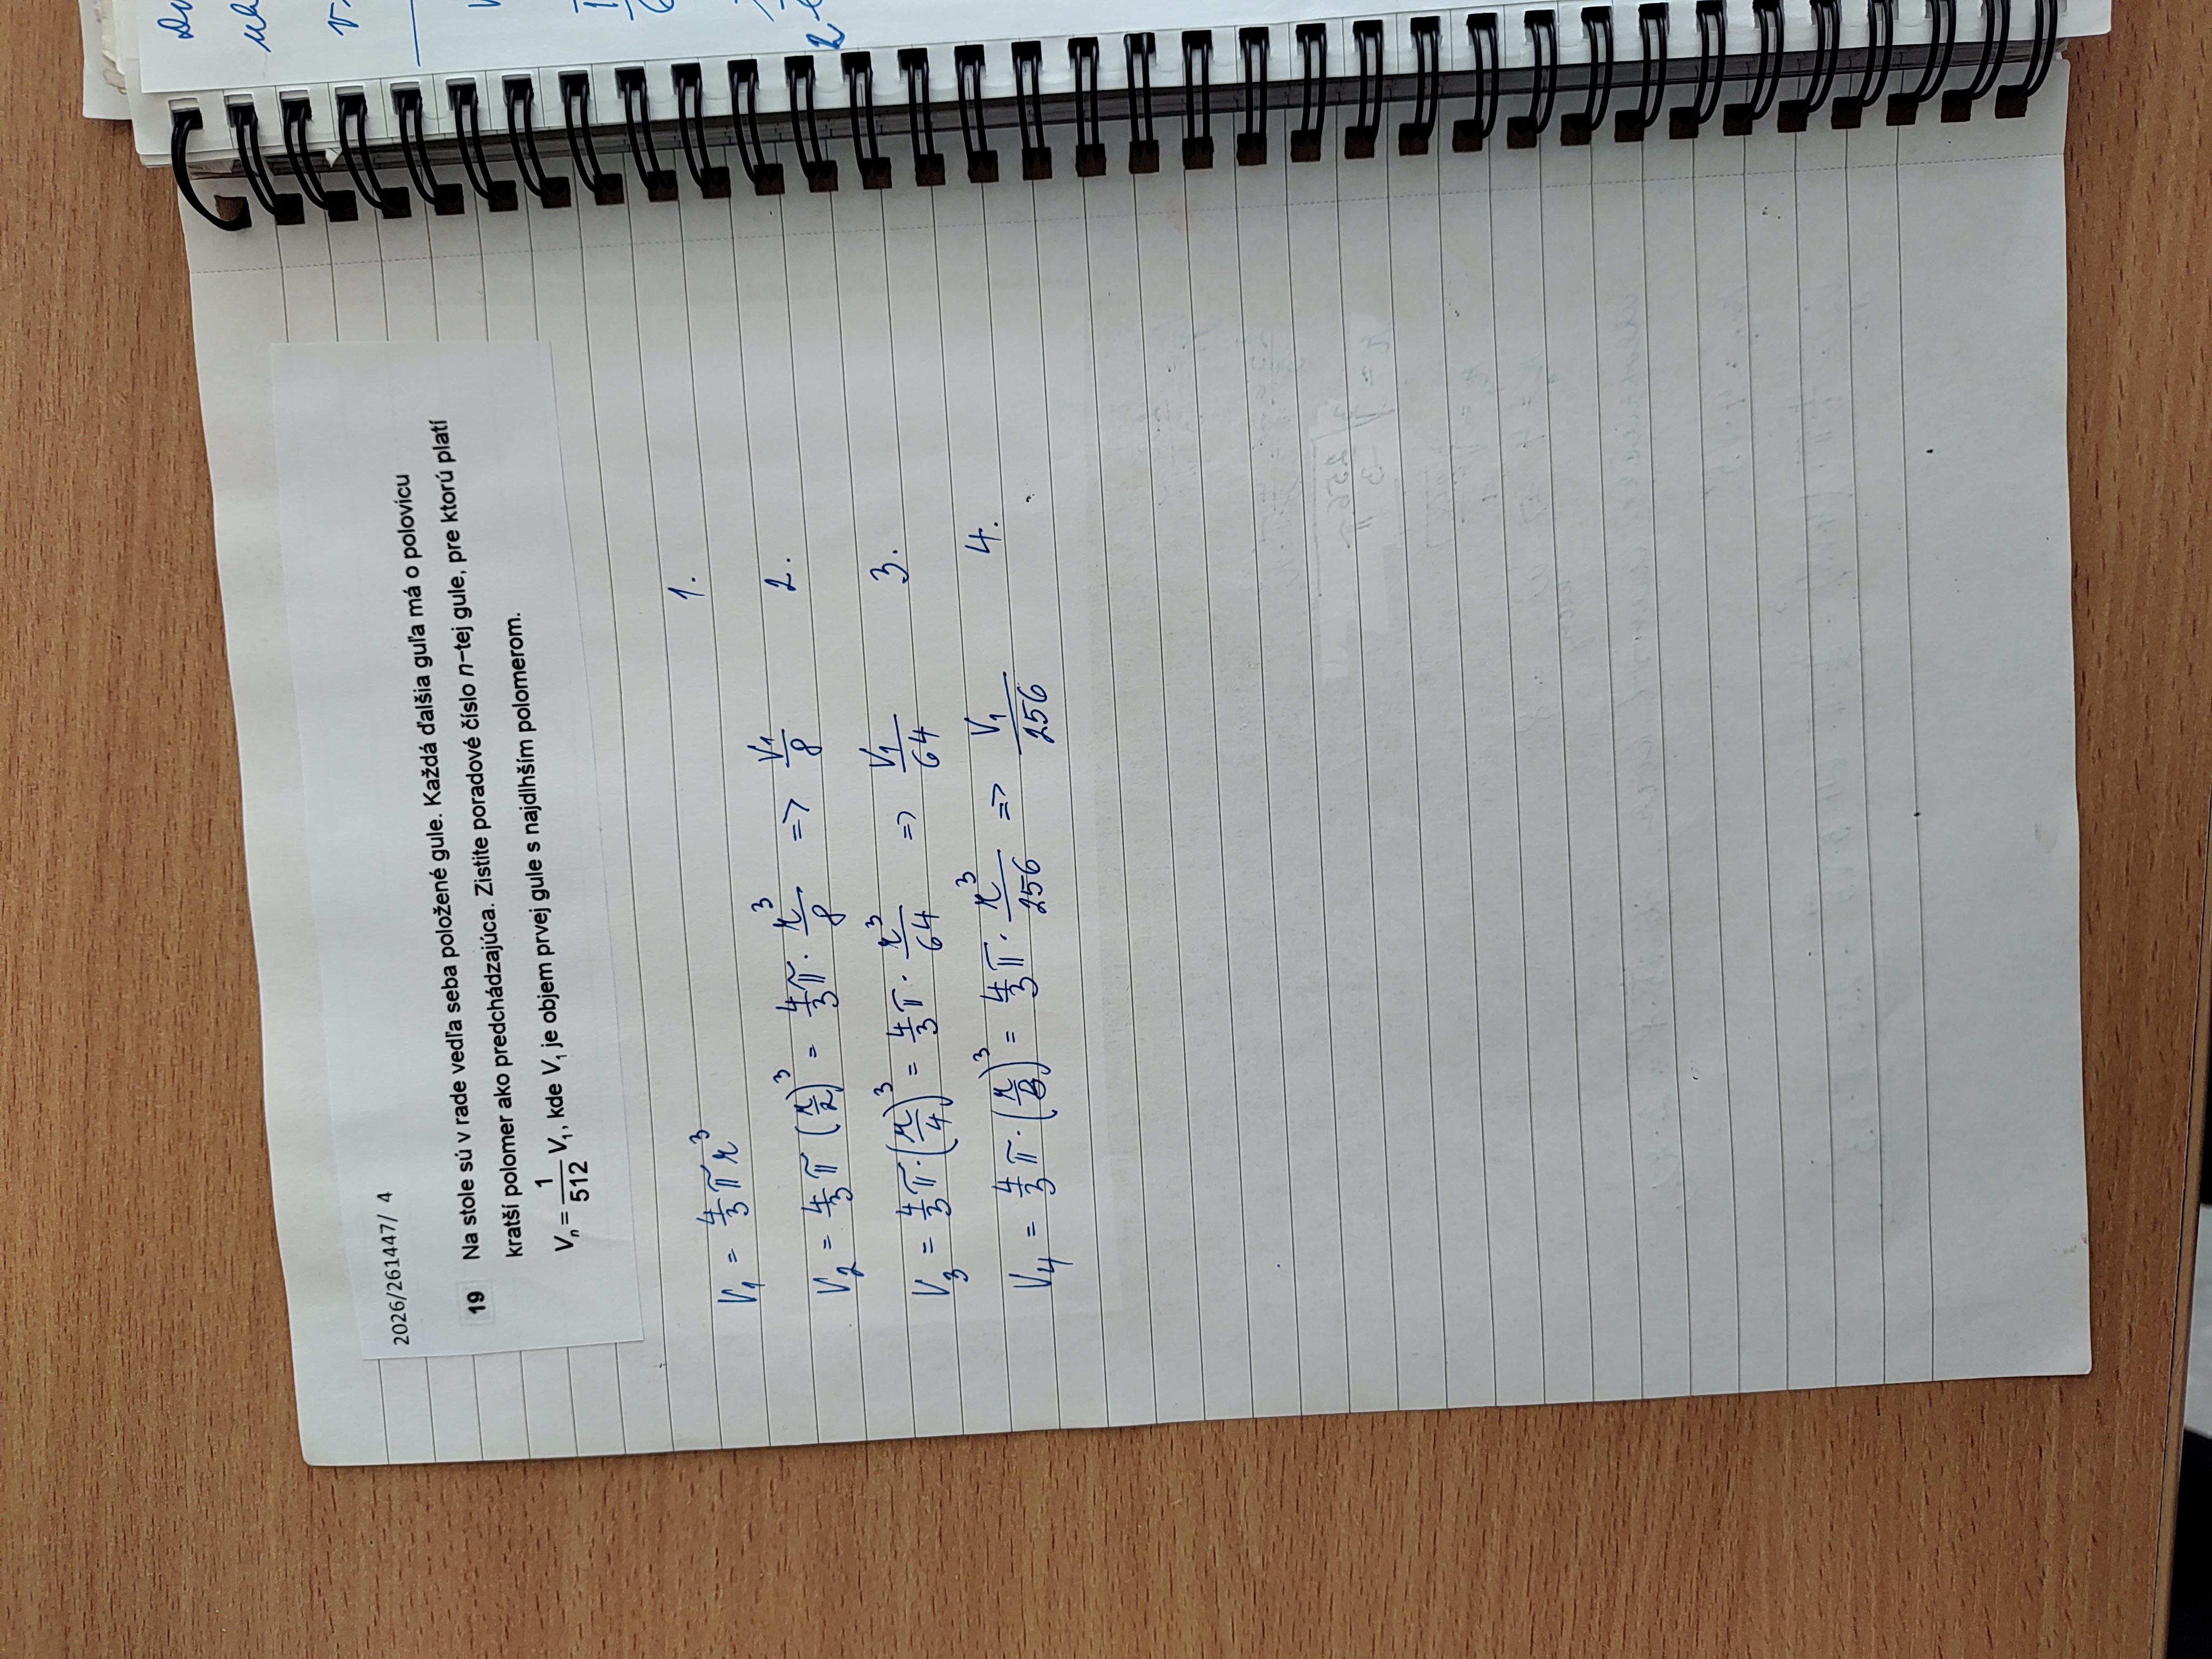 2026/261447/ 4
19 Na stole sú v rade vedľa seba položené gule. Každá ďalšia guľa má o polovicu
kratší polomer ako predchádzajúca. Zistite poradové číslo n–tej gule, pre ktorú platí
Vₙ = 1/512 V₁, kde V₁ je objem prvej gule s najdlhším polomerom.
V₁ = 4/3 π r³ 1.
V₂ = 4/3 π (r/2)³ = 4/3 π · r³/8 => V₁/8 2.
V₃ = 4/3 π · (r/4)³ = 4/3 π · r³/64 => V₁/64 3.
V₄ = 4/3 π · (r/8)³ = 4/3 π · r³/256 => V₁/256 4.